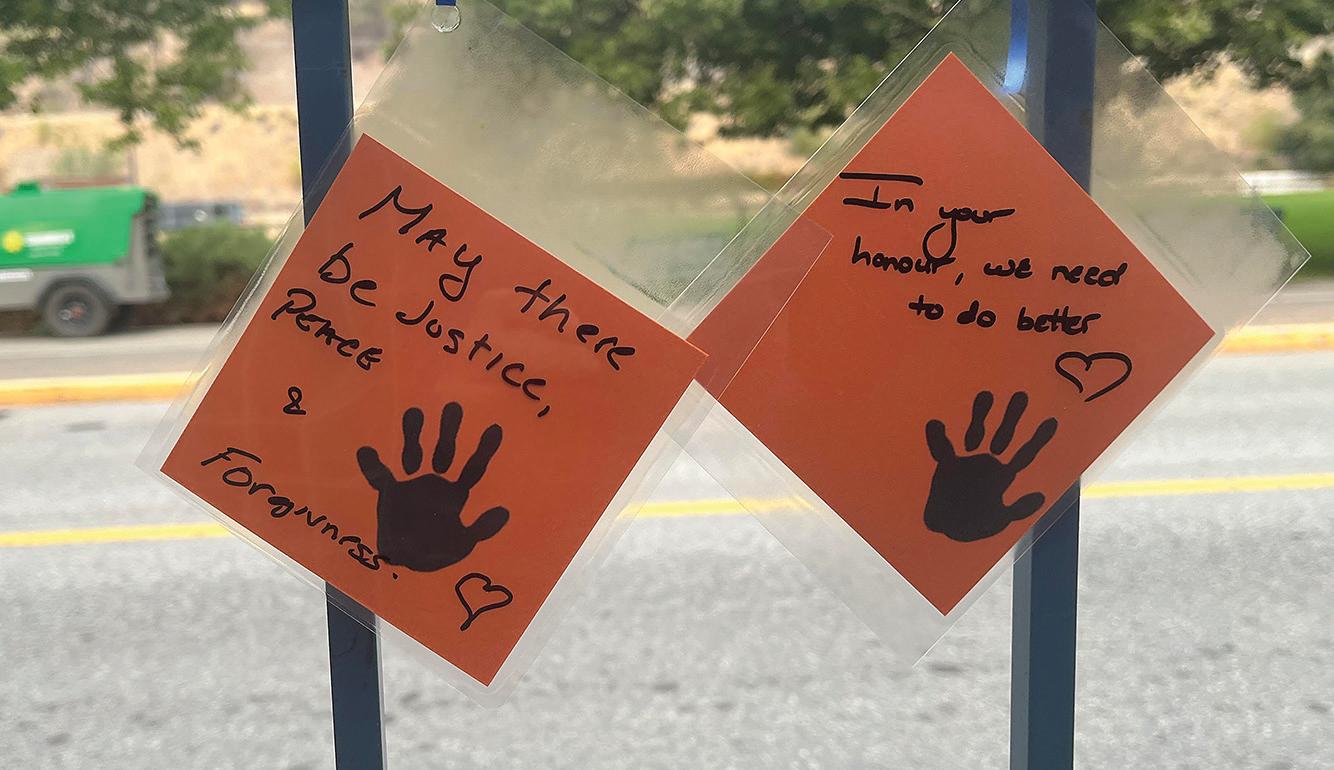 May there
be Justice,
Peace
&
Forgivness.
In your
honour, we need
to do better